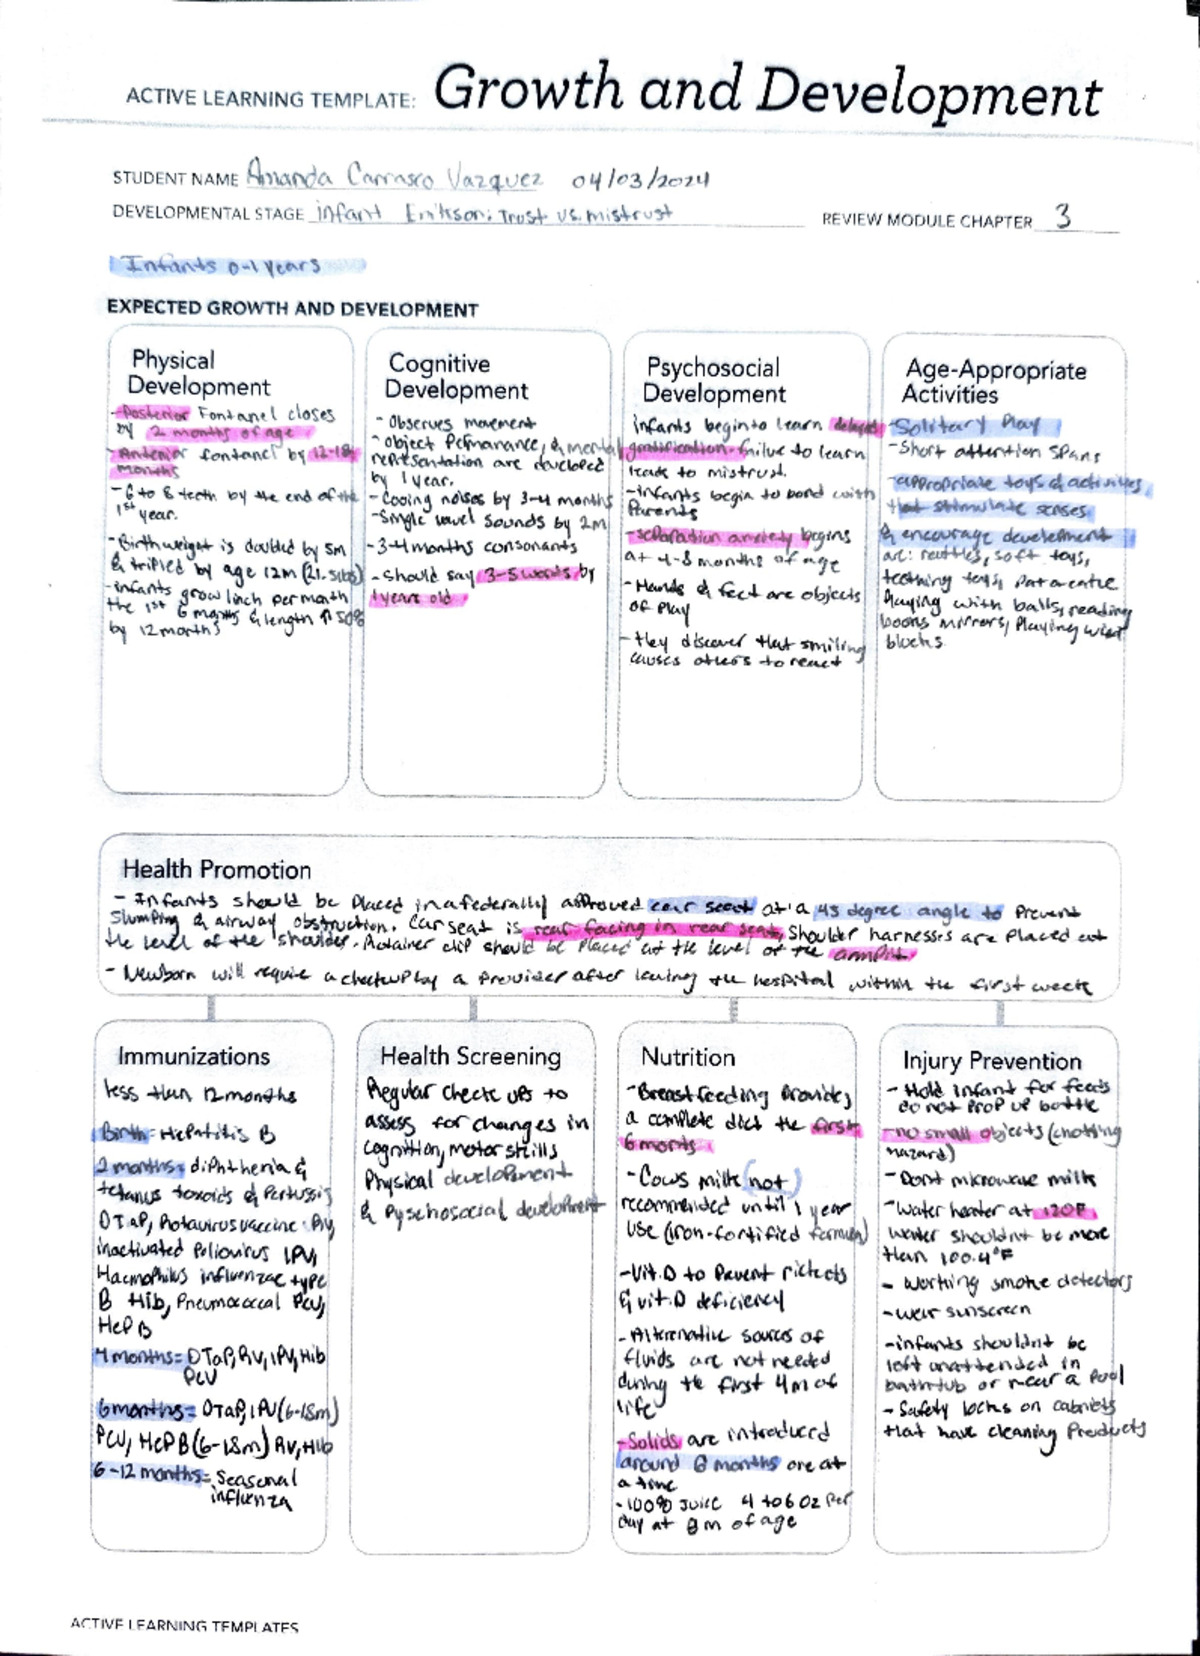 ACTIVE LEARNING TEMPLATE: Growth and Development
STUDENT NAME Amanda Carrasco Vazquez 04/03/2024
DEVELOPMENTAL STAGE infant Erikson: Trust vs. mistrust
REVIEW MODULE CHAPTER 3
Infants 0-1 years
EXPECTED GROWTH AND DEVELOPMENT
Physical
Development
-Posterior Fontanel closes
by 2 months of age
-Anterior fontanel by 12-18
months
-6 to 8 teeth by the end of the
1st year.
-Birthweight is doubled by 5m
& tripled by age 12m (21.5lbs)
-infants grow 1inch per month
the 1st 6 months & length ↑ 50%
by 12 months
Cognitive
Development
-Observes movement
-object Permanance, & mental
representation are developed
by 1 year.
-Cooing noises by 3-4 months
-Single vowel sounds by 2m
-3-4 months consonants
-should say 3-5 words by
1 years old
Psychosocial
Development
infants begin to learn delayed
gratification. failure to learn
leads to mistrust.
-infants begin to bond with
Parents
-separation anxiety begins
at 4-8 months of age
-Hands & feet are objects
of Play
-they discover that smiling
causes others to react
Age-Appropriate
Activities
-Solitary Play
-Short attention spans
-appropriate toys & activities
that stimulate senses
& encourage development
are: rattles, soft toys,
teething toys, Pat a cake
Playing with balls, reading
books mirrors, Playing with
blocks.
Health Promotion
- Infants should be Placed in a federally approved car seat at a 45 degree angle to Prevent
Slumping & airway obstruction. Car seat is rear-facing in rear seat, Shoulder harnesses are Placed at
the level of the shoulder. Retainer clip should be Placed at the level of the armpit.
- Newborn will require a checkup by a Provider after leaving the hospital within the first week
Immunizations
less than 12 months
Birth= Hepatitis B
2 months= diphtheria &
tetanus toxoids & Pertussis
DTaP, Rotavirus vaccine RV,
inactivated Poliovirus IPV,
Haemophilus influenzae type
B Hib, Pneumococcal PCV,
Hep B
4 months= DTaP, RV, IPV, Hib
PCV
6 months= DTaP, IPV (6-18m)
PCV, HepB (6-18m) RV, Hib
6-12 months= Seasonal
influenza
Health Screening
Regular check ups to
assess for changes in
cognition, motor skills
Physical development
& Pyschosocial development
Nutrition
-Breastfeeding Provides
a complete diet the first
6 months
-Cows milk (not)
recommended until 1 year
use (iron-fortified formula)
-Vit. D to Prevent rickets
& vit. D deficiency
-Alternative sources of
fluids are not needed
during the first 4m of
life
-Solids are introduced
around 6 months one at
a time
-100% Juice 4 to 6 oz Per
day at 8m of age
Injury Prevention
- Hold infant for feeds
do not Prop up bottle
-no small objects (choking
hazard)
-Dont microwave milk
-Water heater at 120F
water shouldnt be more
than 100.4°F
- Working smoke detectors
-wear sunscreen
-infants shouldnt be
left unattended in
bathtub or near a Pool
- Safety locks on cabinets
that have cleaning Products
ACTIVE LEARNING TEMPLATES